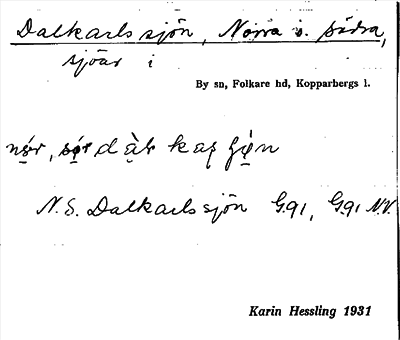 Dalkarlssjön, Norra o. södra,
sjöar i
By sn, Folkare hd, Kopparbergs l.
nọ́r, sọ́r dàḷkaṣ
N. S. Dalkarlssjön G.91, G.91 N.V.
Karin Hessling 1931